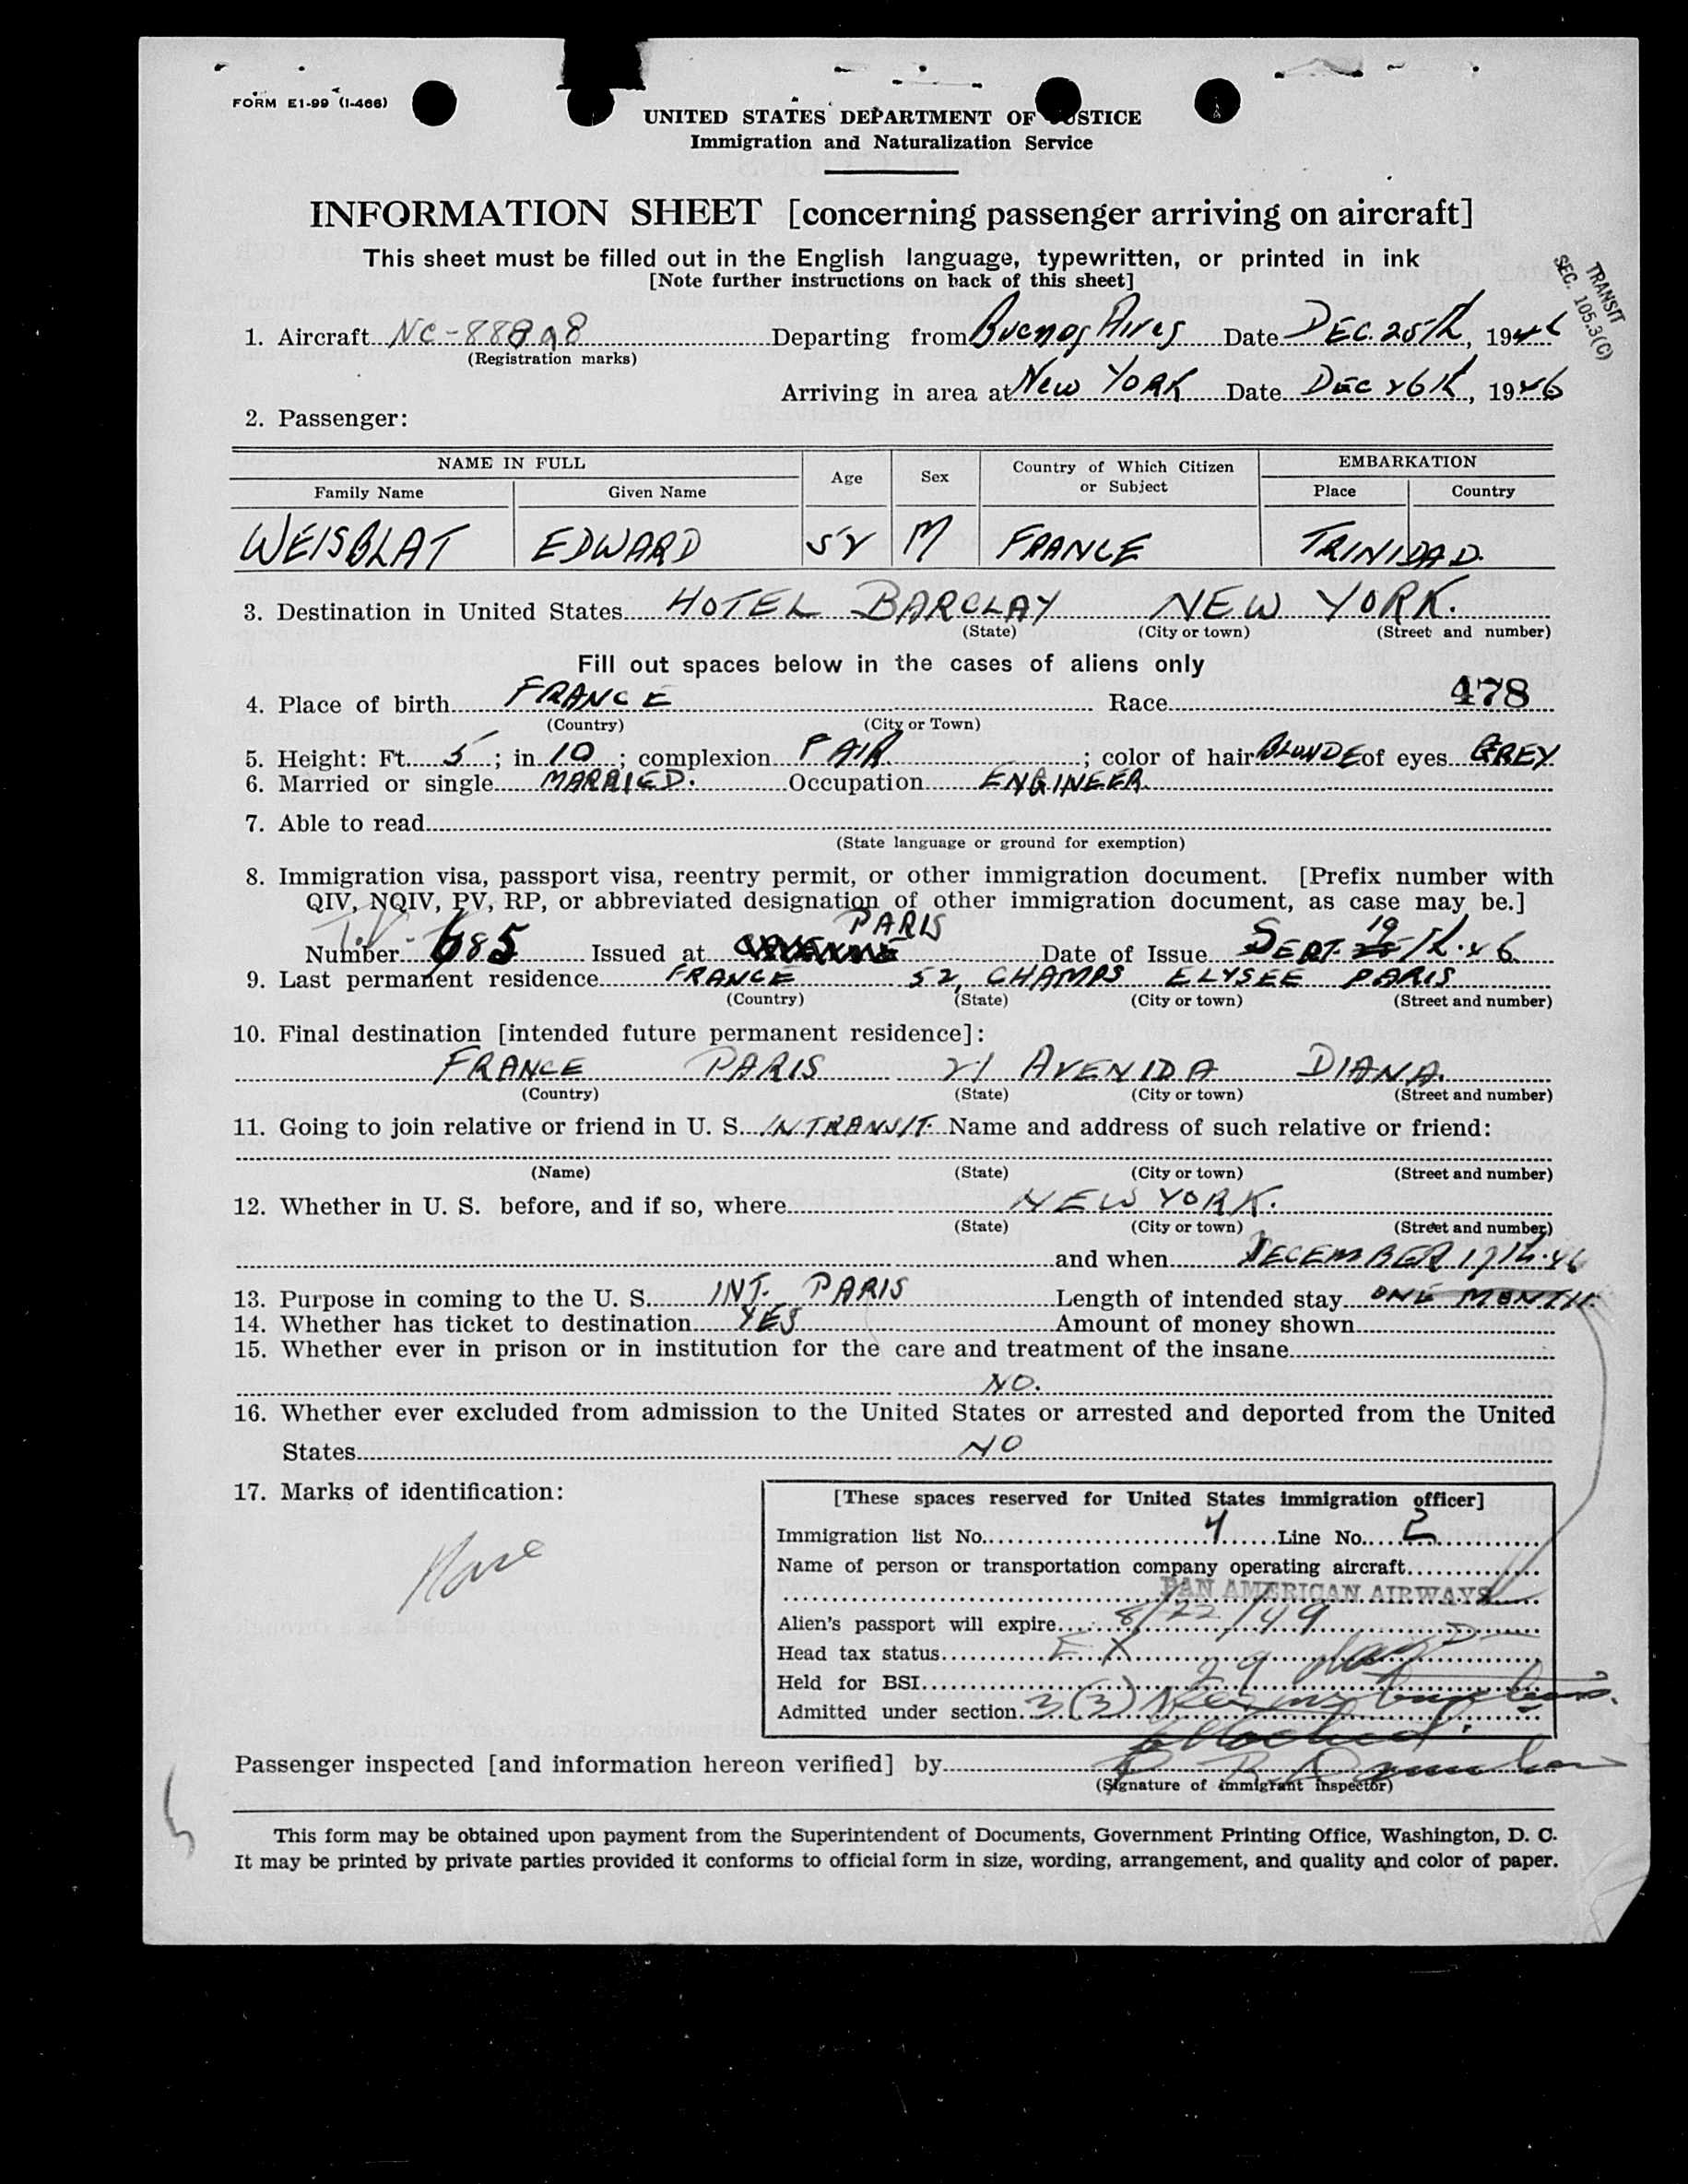 FORM E1-99 (I-466)
UNITED STATES DEPARTMENT OF JUSTICE
Immigration and Naturalization Service
INFORMATION SHEET [concerning passenger arriving on aircraft]
This sheet must be filled out in the English language, typewritten, or printed in ink
[Note further instructions on back of this sheet]
TRANSIT
SEC. 105.3(C)
1. Aircraft NC-88898 Departing from Buenos Aires Date DEC. 25th, 1946
(Registration marks)
Arriving in area at New YORK Date DEC 26th, 1946
2. Passenger:
NAME IN FULL Age Sex Country of Which Citizen or Subject EMBARKATION
Family Name Given Name Place Country
WEISBLAT EDWARD 52 M FRANCE TRINIDAD.
3. Destination in United States HOTEL BARCLAY NEW YORK.
(State) (City or town) (Street and number)
Fill out spaces below in the cases of aliens only
4. Place of birth FRANCE Race 478
(Country) (City or Town)
5. Height: Ft. 5; in 10; complexion FAIR; color of hair BLONDE of eyes GREY
6. Married or single MARRIED. Occupation ENGINEER.
7. Able to read
(State language or ground for exemption)
8. Immigration visa, passport visa, reentry permit, or other immigration document. [Prefix number with
QIV, NQIV, PV, RP, or abbreviated designation of other immigration document, as case may be.]
PARIS
Number 685 Issued at CAYENNE Date of Issue SEPT. 19 th. 46
9. Last permanent residence FRANCE 52, CHAMPS ELYSEE PARIS
(Country) (State) (City or town) (Street and number)
10. Final destination [intended future permanent residence]:
FRANCE PARIS 21 AVENIDA DIANA.
(Country) (State) (City or town) (Street and number)
11. Going to join relative or friend in U. S. IN TRANSIT. Name and address of such relative or friend:
(Name) (State) (City or town) (Street and number)
12. Whether in U. S. before, and if so, where NEW YORK.
(State) (City or town) (Street and number)
and when DECEMBER 17th. 46
13. Purpose in coming to the U. S. INT. PARIS Length of intended stay ONE MONTH.
14. Whether has ticket to destination YES Amount of money shown
15. Whether ever in prison or in institution for the care and treatment of the insane
NO.
16. Whether ever excluded from admission to the United States or arrested and deported from the United
States NO
17. Marks of identification:
None
[These spaces reserved for United States immigration officer]
Immigration list No. 4 Line No. 2
Name of person or transportation company operating aircraft
PAN AMERICAN AIRWAYS
Alien's passport will expire 8/22/49
Head tax status EX
Held for BSI 29 days
Admitted under section 3(3)
attached.
Passenger inspected [and information hereon verified] by
(Signature of immigrant inspector)
This form may be obtained upon payment from the Superintendent of Documents, Government Printing Office, Washington, D. C.
It may be printed by private parties provided it conforms to official form in size, wording, arrangement, and quality and color of paper.